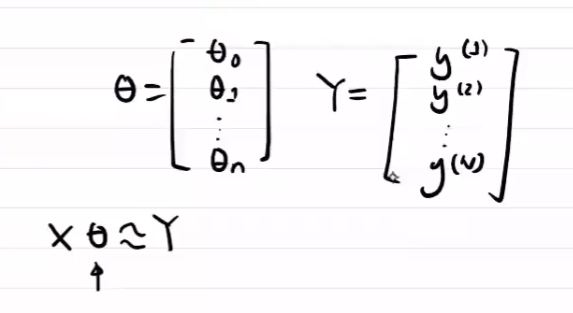 θ = [θ₀ θ₁ ⋮ θₙ] Y = [y⁽¹⁾ y⁽²⁾ ⋮ y⁽ᴺ⁾]
Xθ ≈ Y
↑